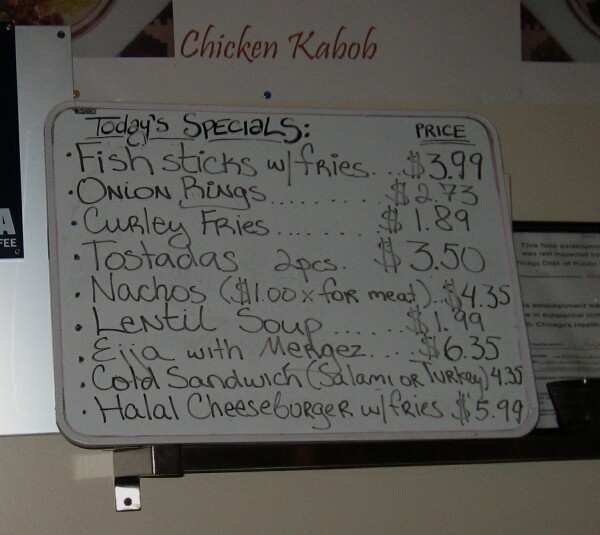 Chicken Kabob
Today's Specials: PRICE
· Fish sticks w/fries... $3.99
· Onion Rings........ $2.73
· Curley Fries....... $1.89
· Tostadas 2pcs. $3.50
· Nachos ($1.00 x for meat).. $4.35
· Lentil Soup..... $1.99
· Ejja with Mergez.... $6.35
· Cold Sandwich (Salami or Turkey) 4.35
· Halal Cheeseburger w/fries $5.99
A
FEE
This food establishm
was last inspected by
Chicago Dept. of Public